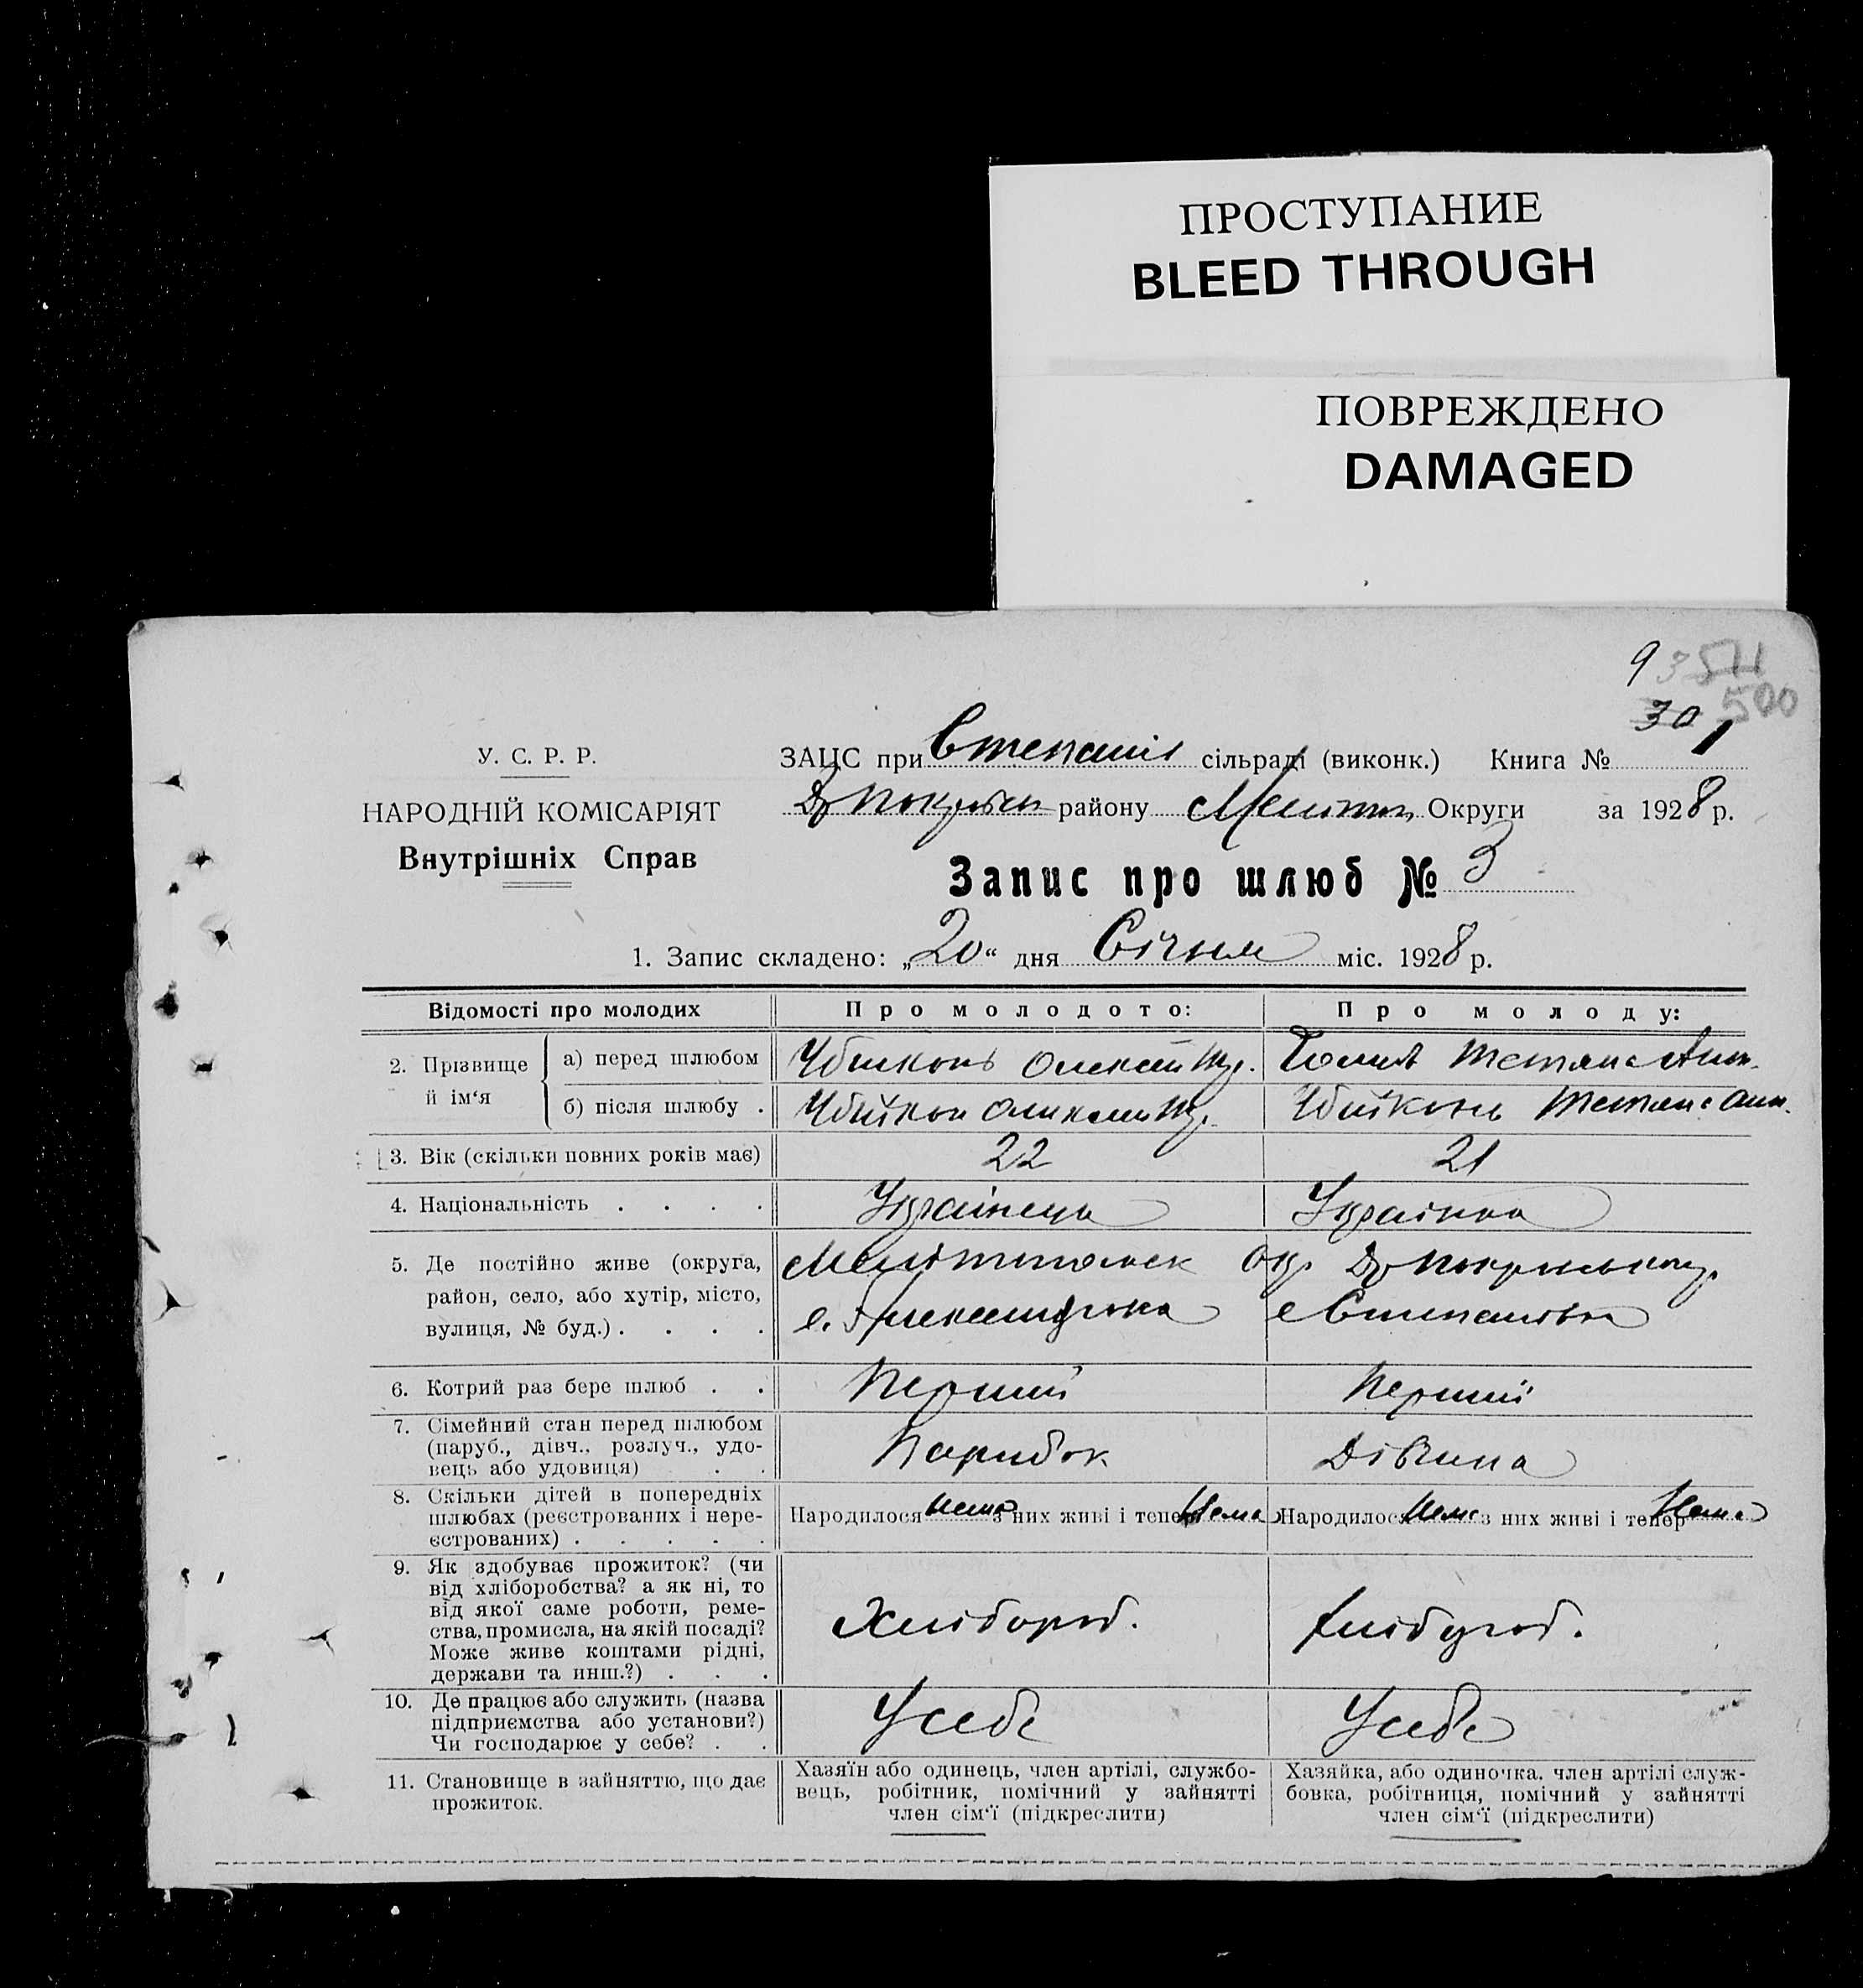 ПРОСТУПАНИЕ
BLEED THROUGH
ПОВРЕЖДЕНО
DAMAGED
9 3571
500
30
У. С. Р. Р.
НАРОДНІЙ КОМІСАРІЯТ
Внутрішніх Справ
ЗАЦС при сільраді (виконк.) Книга № 1
району Округи за 1928 р.
Запис про шлюб № 3
1. Запис складено: „20“ дня Січня міс. 1928 р.
Відомості про молодих Про молодого: Про молоду:
2. Прізвище й ім‘я
а) перед шлюбом
б) після шлюбу .
3. Вік (скільки повних років має) 22 21
4. Національність . . . . Українець Українка
5. Де постійно живе (округа,
район, село, або хутір, місто,
вулиця, № буд.) . . . . с. с Степанівка
6. Котрий раз бере шлюб . . Перший Перший
7. Сімейний стан перед шлюбом
(паруб., дівч., розлуч., удо-
вець або удовиця) . . Парубок Дівчина
8. Скільки дітей в попередніх
шлюбах (реєстрованих і нере-
єстрованих) . . . . .
Народилося нема з них живі і тепер Нема Народилося Нема з них живі і тепер Нема
9. Як здобуває прожиток? (чи
від хліборобства? а як ні, то
від якої саме роботи, реме-
ства, промисла, на якій посаді?
Може живе коштами рідні,
держави та инш.?) . . .
Хлібороб. Хлібороб.
10. Де працює або служить (назва
підприємства або установи?)
Чи господарює у себе? . .
У себе У себе
11. Становище в зайняттю, що дає
прожиток.
Хазяїн або одинець, член артілі, службо-
вець, робітник, помічний у зайнятті
член сім‘ї (підкреслити)
Хазяйка, або одиночка. член артілі служ-
бовка, робітниця, помічний у зайнятті
член сім‘ї (підкреслити)